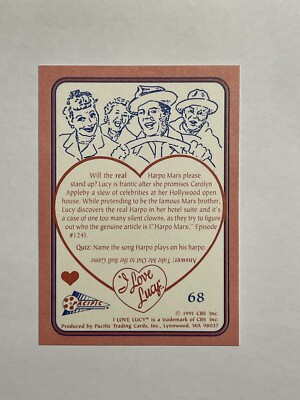 Will the real Harpo Marx please
stand up? Lucy is frantic after she promises Carolyn
Appleby a slew of celebrities at her Hollywood open
house. While pretending to be the famous Marx brother,
Lucy discovers the real Harpo in her hotel suite and it's
a case of one too many silent clowns, as they try to figure
out who the genuine article is ("Harpo Marx," Episode
#124).
Quiz: Name the song Harpo plays on his harpo.
Answer: Take Me Out to the Ball Game
I Love
Lucy
68
PACIFIC
© 1991 CBS Inc.
I LOVE LUCY™ is a trademark of CBS Inc.
Produced by Pacific Trading Cards, Inc., Lynnwood, WA 98037